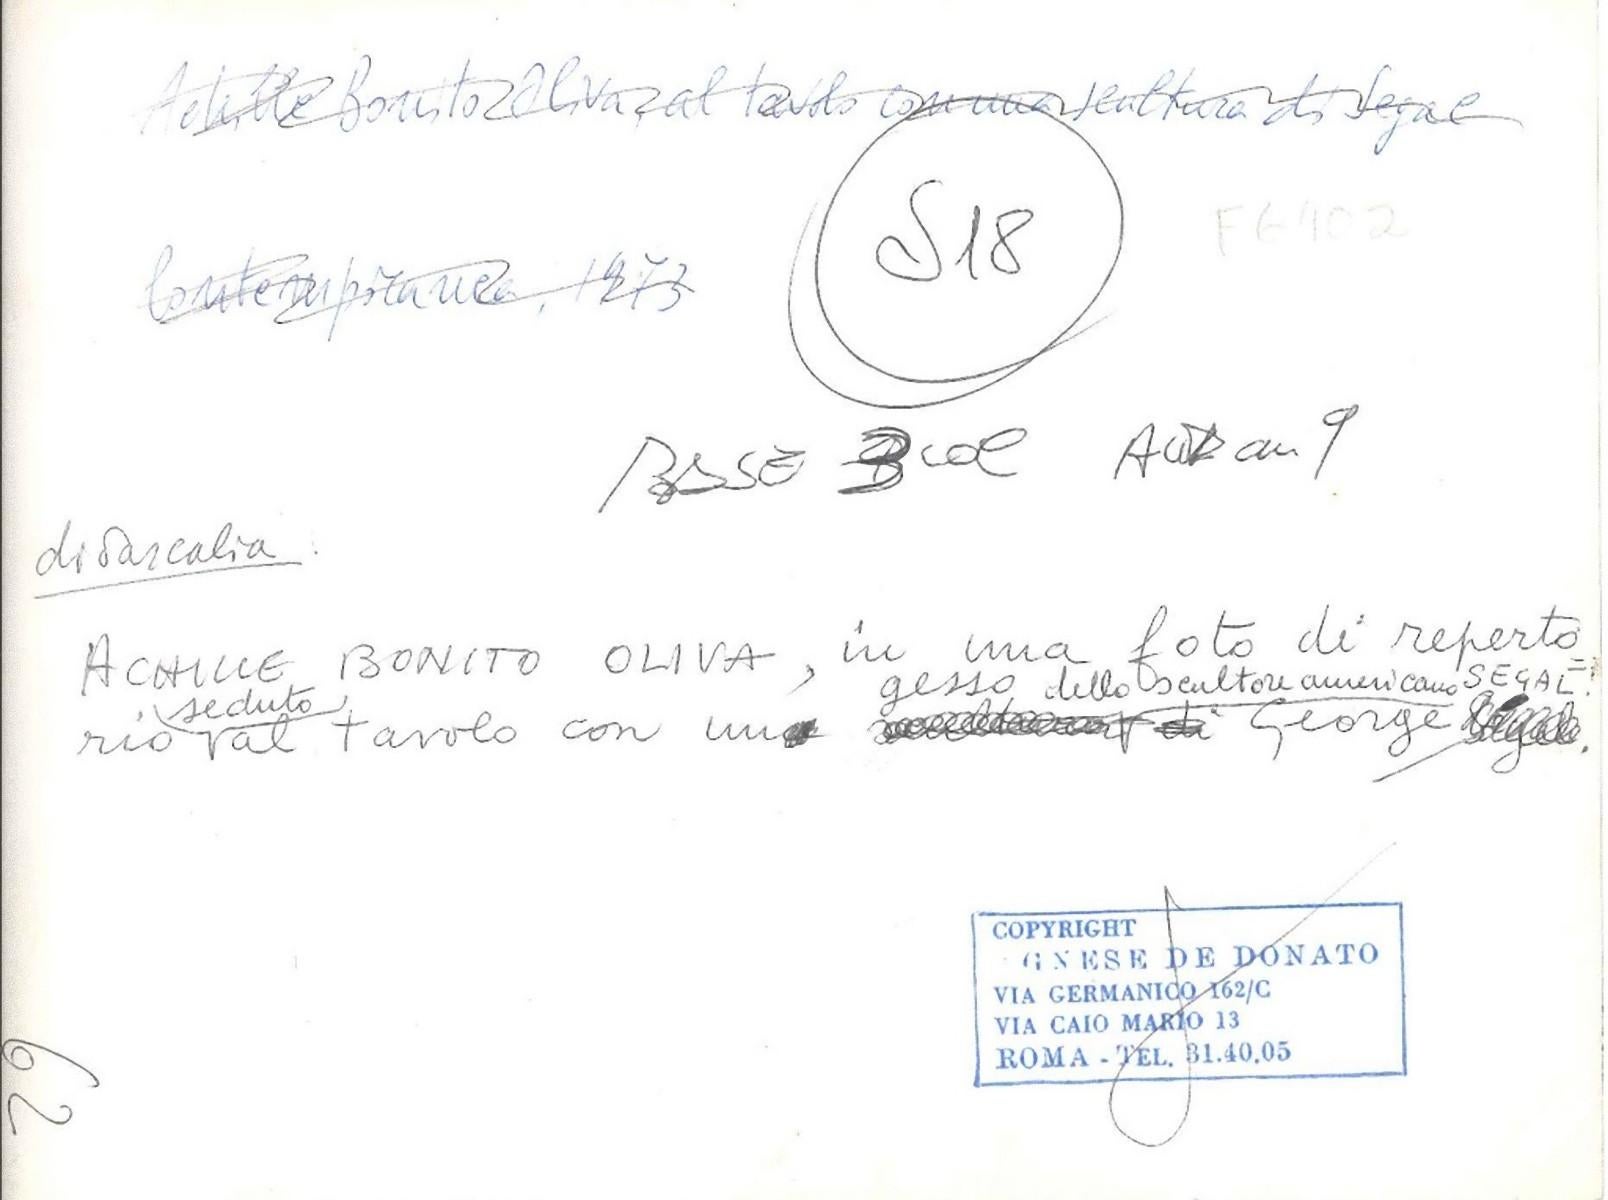 Achille Bonito Oliva, al tavolo con una scultura di Segal
S18
FG 402
Contemporanea, 1973
BASE 3 col
didascalia:
ACHILLE BONITO OLIVA, in una foto di reperto
gesso dello scultore americano SEGAL
seduto
rio, al tavolo con un di George
COPYRIGHT
GNESE DE DONATO
VIA GERMANICO 162/C
VIA CAIO MARIO 13
ROMA - TEL. 31.40.05
62